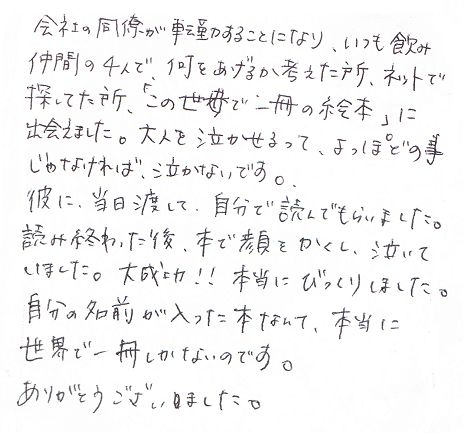 会社の同僚が転勤することになり、いつも飲み
仲間の4人で、何をあげるか考えた所、ネットで
探してた所、「この世で一冊の絵本」に
出会えました。大人を泣かせるって、よっぽどの事
じゃなければ、泣かないです。
彼に、当日渡して、自分で読んでもらいました。
読み終わった後、本で顔をかくし、泣いて
いました。大成功!!本当にびっくりしました。
自分の名前が入った本なんて、本当に
世界で一冊しかないのです。
ありがとうございました。